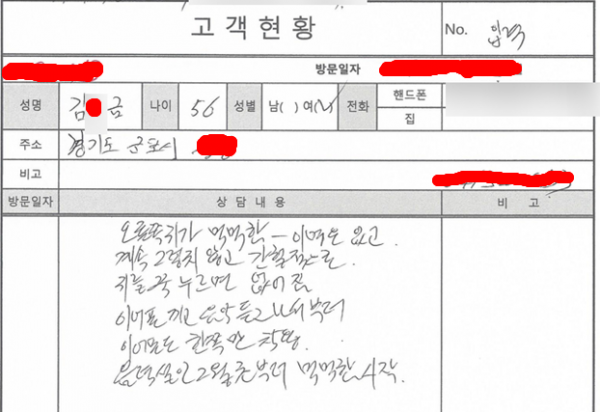 고객현황
No. 입력
방문일자
성명 김 금 나이 56 성별 남( ) 여(✓) 전화 핸드폰
집
주소 경기도 군포시
비고
방문일자 상담내용 비고
오른쪽귀가 먹먹한 – 이명도 있고.
계속 그렇치 않고 간헐적으로
귀를 꾹 누르면 없어짐
이어폰 끼고 음악 듣고 나서부터
이어폰도 한쪽만 착용.
음력설인 2월초부터 먹먹한 시작.